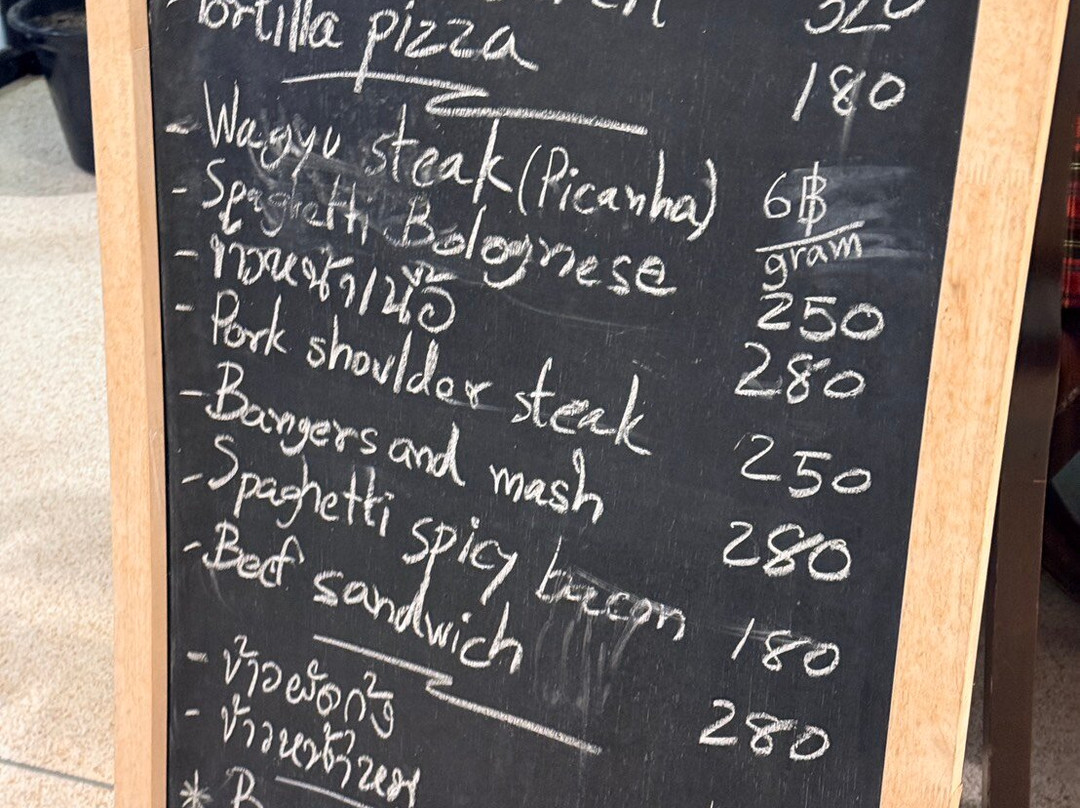 Tortilla pizza 180
- Wagyu steak (Picanha) 6฿/gram
- Spaghetti Bolognese 250
- ข้าวหน้า/เนื้อ 280
- Pork shoulder steak 250
- Bangers and mash 280
- Spaghetti spicy bacon 180
- Beef sandwich 280
- ข้าวผัดกุ้ง